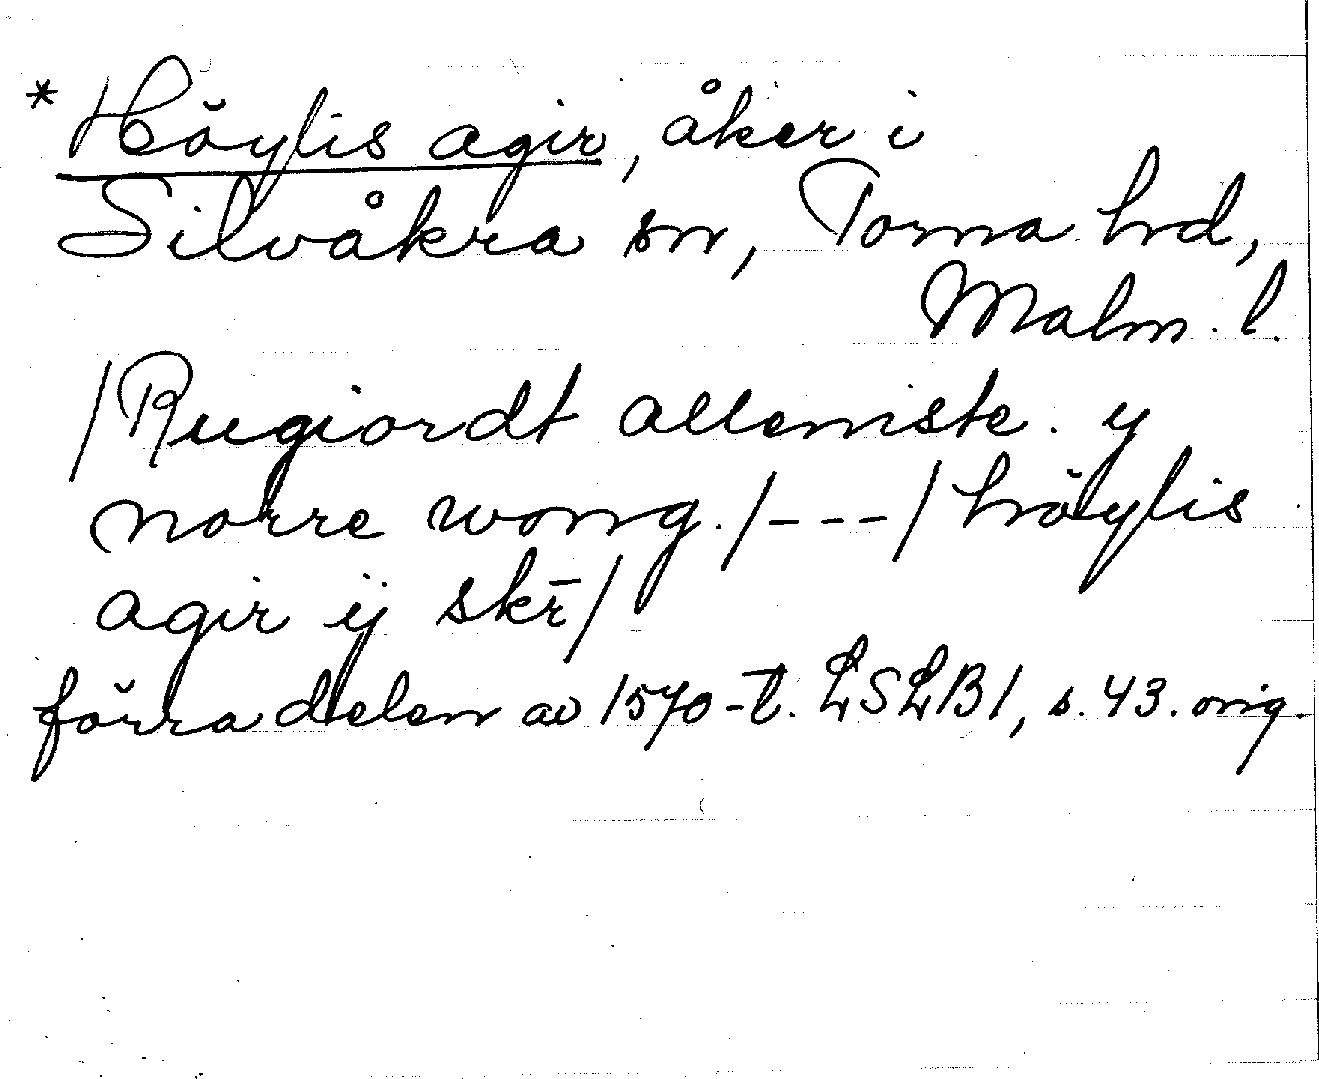 * Höylis agir, åker i
Silvåkra sn, Torna hd,
Malm. l.
/Rugiordt allemste. y
norre wong./---/höylis
agir ÿ skr̄/
förra delen av 1570-t. LSLB1, s. 43. orig.